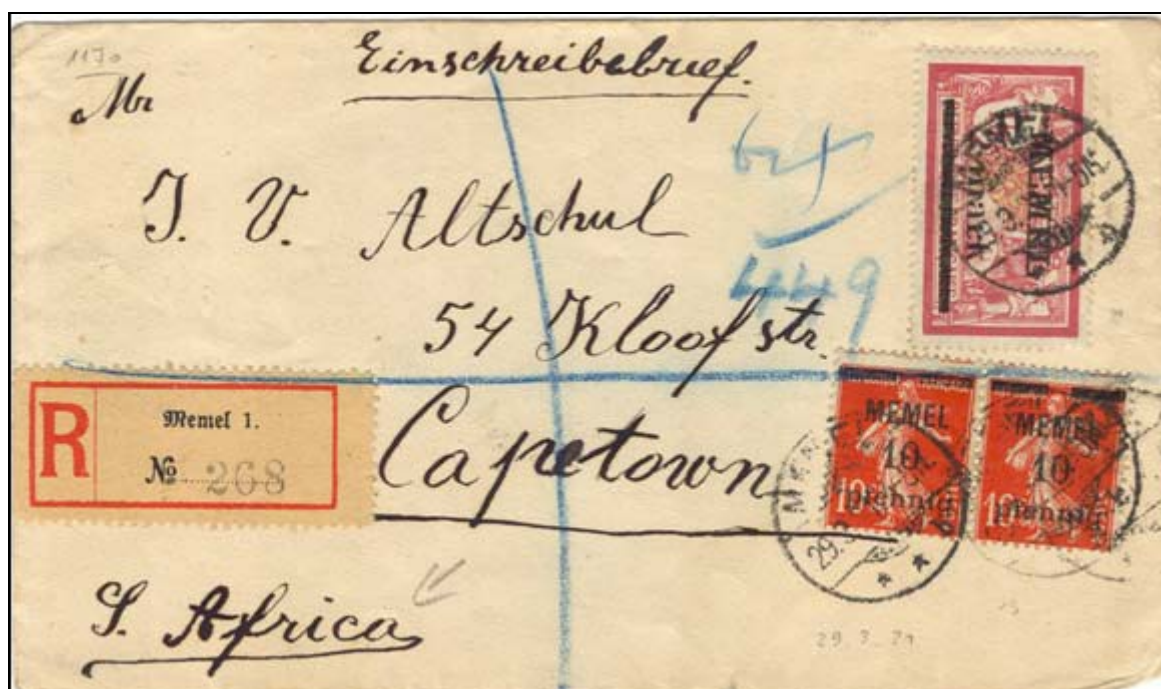 1170
Einschreibebrief.
Mr
J. V. Altschul
54 Kloof str.
Capetown
S. Africa
R
Memel 1.
№ 268
449
MEMEL
10
pfennig
10
MEMEL
10
pfennig
10
29.3.21